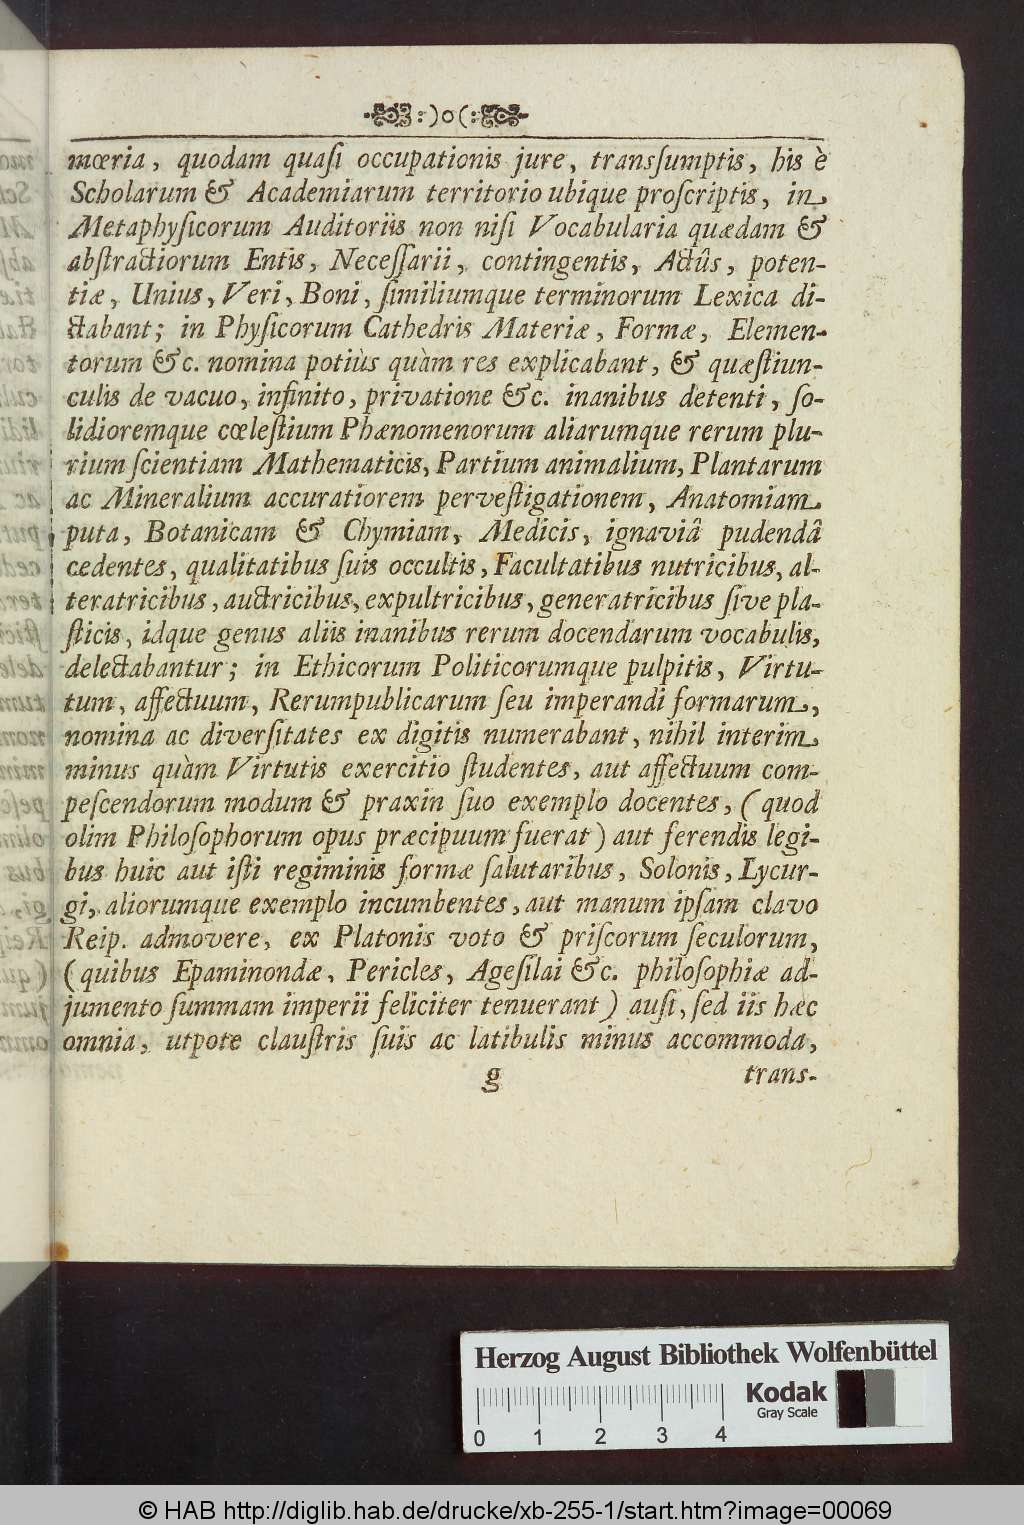 :)o(:
mœria, quodam quaſi occupationis jure, transſumptis, his è
Scholarum & Academiarum territorio ubique proſcriptis, in
Metaphyſicorum Auditoriis non niſi Vocabularia quædam &
abſtractiorum Entis, Neceſſarii, contingentis, Actûs, poten-
tiæ, Unius, Veri, Boni, ſimiliumque terminorum Lexica di-
ctabant; in Phyſicorum Cathedris Materiæ, Formæ, Elemen-
torum &c. nomina potiùs quàm res explicabant, & quæſtiun-
culis de vacuo, infinito, privatione &c. inanibus detenti, ſo-
lidioremque cœleſtium Phænomenorum aliarumque rerum plu-
rium ſcientiam Mathematicis, Partium animalium, Plantarum
ac Mineralium accuratiorem perveſtigationem, Anatomiam
puta, Botanicam & Chymiam, Medicis, ignaviâ pudendâ
cedentes, qualitatibus ſuis occultis, Facultatibus nutricibus, al-
teratricibus, auctricibus, expultricibus, generatricibus ſive pla-
ſticis, idque genus aliis inanibus rerum docendarum vocabulis,
delectabantur; in Ethicorum Politicorumque pulpitis, Virtu-
tum, affectuum, Rerumpublicarum ſeu imperandi formarum,
nomina ac diverſitates ex digitis numerabant, nihil interim
minus quàm Virtutis exercitio ſtudentes, aut affectuum com-
peſcendorum modum & praxin ſuo exemplo docentes, (quod
olim Philoſophorum opus præcipuum fuerat) aut ferendis legi-
bus huic aut iſti regiminis formæ ſalutaribus, Solonis, Lycur-
gi, aliorumque exemplo incumbentes, aut manum ipſam clavo
Reip. admovere, ex Platonis voto & priſcorum ſeculorum,
(quibus Epaminondæ, Pericles, Ageſilai &c. philoſophiæ ad-
jumento ſummam imperii feliciter tenuerant) auſi, ſed iis hæc
omnia, utpote clauſtris ſuis ac latibulis minus accommoda,
g trans-
Herzog August Bibliothek Wolfenbüttel
Kodak
Gray Scale
0 1 2 3 4
© HAB http://diglib.hab.de/drucke/xb-255-1/start.htm?image=00069